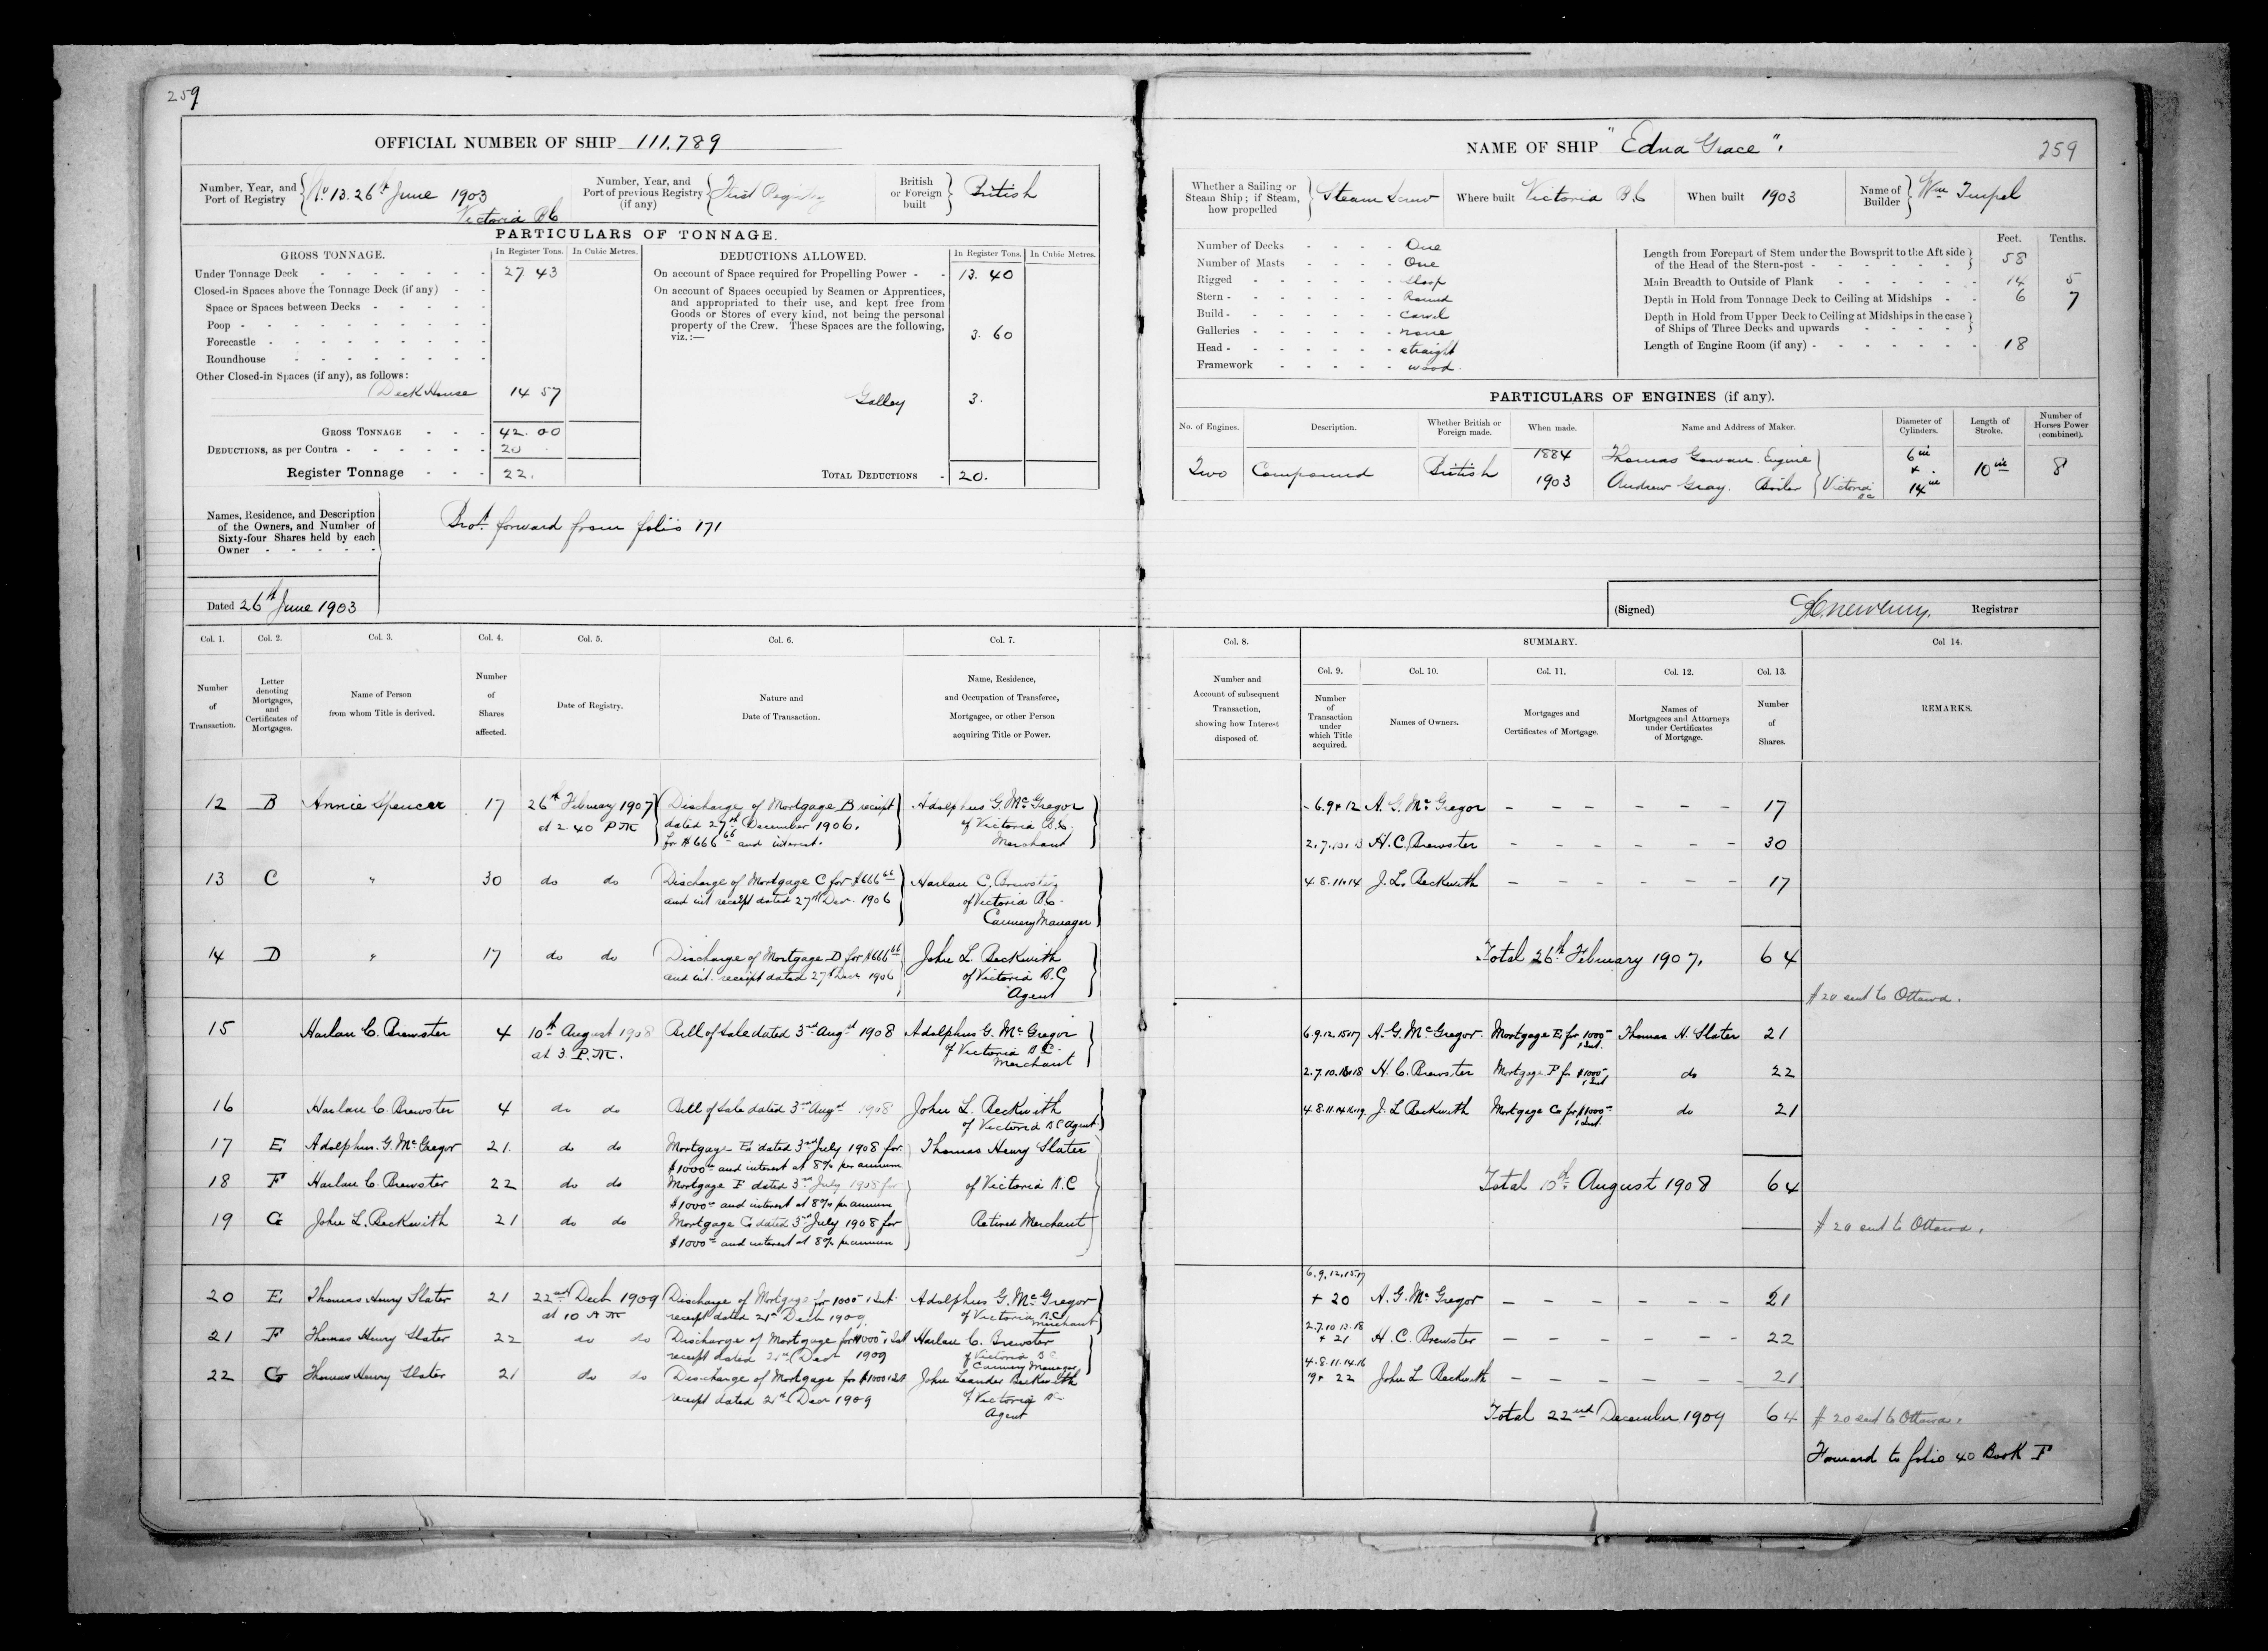 259
OFFICIAL NUMBER OF SHIP 111,789
Number, Year, and Port of Registry No 13. 26th June 1903 Victoria BC
Number, Year, and Port of previous Registry (if any) First Registry
British or Foreign built British
PARTICULARS OF TONNAGE.
GROSS TONNAGE. In Register Tons. In Cubic Metres.
Under Tonnage Deck 27 43
Closed-in Spaces above the Tonnage Deck (if any)
Space or Spaces between Decks
Poop
Forecastle
Roundhouse
Other Closed-in Spaces (if any), as follows:
Deck House 14 57
GROSS TONNAGE 42.00
DEDUCTIONS, as per Contra 20
Register Tonnage 22.
DEDUCTIONS ALLOWED. In Register Tons. In Cubic Metres.
On account of Space required for Propelling Power 13. 40
On account of Spaces occupied by Seamen or Apprentices,
and appropriated to their use, and kept free from
Goods or Stores of every kind, not being the personal
property of the Crew. These Spaces are the following,
viz.:— 3. 60
Galley 3.
TOTAL DEDUCTIONS 20.
Names, Residence, and Description
of the Owners, and Number of
Sixty-four Shares held by each
Owner
Brot. forward from folio 171
Dated 26th June 1903
NAME OF SHIP "Edna Grace".
259
Whether a Sailing or Steam Ship; if Steam, how propelled Steam Screw
Where built Victoria B.C
When built 1903
Name of Builder Wm Turpel
Number of Decks One
Number of Masts One
Rigged Sloop
Stern Round
Build Carvel
Galleries none
Head straight
Framework wood.
Feet. Tenths.
Length from Forepart of Stem under the Bowsprit to the Aft side
of the Head of the Stern-post 58
Main Breadth to Outside of Plank 14 5
Depth in Hold from Tonnage Deck to Ceiling at Midships 6 7
Depth in Hold from Upper Deck to Ceiling at Midships in the case
of Ships of Three Decks and upwards
Length of Engine Room (if any) 18
PARTICULARS OF ENGINES (if any).
No. of Engines. Description. Whether British or Foreign made. When made. Name and Address of Maker. Diameter of Cylinders. Length of Stroke. Number of Horses Power (combined).
Two Compound British 1884 Thomas Gowan. Engine 6 in + 14 in 10 in 8
1903 Andrew Gray. Boiler Victoria BC
(Signed) Registrar
Col. 1. Col. 2. Col. 3. Col. 4. Col. 5. Col. 6. Col. 7.
Number of Transaction.
Letter denoting Mortgages, and Certificates of Mortgages.
Name of Person from whom Title is derived.
Number of Shares affected.
Date of Registry.
Nature and Date of Transaction.
Name, Residence, and Occupation of Transferee, Mortgagee, or other Person acquiring Title or Power.
12 B Annie Spencer 17 26th February 1907 Discharge of Mortgage B receipt Adolphus G. McGregor
at 2.40 P.M dated 27th December 1906. of Victoria B.C.
for $666 66 and interest. Merchant
13 C " 30 do do Discharge of Mortgage C for $666 66 Harlan C. Brewster
and int receipt dated 27th Decr. 1906 of Victoria B.C.
Cannery Manager
14 D " 17 do do Discharge of Mortgage D for $666 66 John L. Beckwith
and int. receipt dated 27th Decr 1906 of Victoria B.C
Agent
15 Harlan C. Brewster 4 10th August 1908 Bill of Sale dated 3rd Augst 1908 Adolphus G. McGregor
at 3. P.M. of Victoria B.C.
Merchant
16 Harlan C. Brewster 4 do do Bill of Sale dated 3rd Augst 1908 John L. Beckwith
of Victoria B.C Agent
17 E Adolphus. G. McGregor 21. do do Mortgage E dated 3rd July 1908 for Thomas Henry Slater
$1000 and interest at 8% per annum
18 F Harlan C. Brewster 22 do do Mortgage F dated 3rd July 1908 for of Victoria B.C
$1000 and interest at 8% per annum
19 G John L. Beckwith 21 do do Mortgage G dated 3rd July 1908 for Retired Merchant
$1000 and interest at 8% per annum
20 E Thomas Henry Slater 21 22nd Decr 1909 Discharge of Mortgage for 1000 & Int. Adolphus G. McGregor
at 10 A M receipt dated 21st Decr 1909. of Victoria B.C
Merchant
21 F Thomas Henry Slater 22 do do Discharge of Mortgage for $1000 & Int Harlan C. Brewster
receipt dated 21st Decr 1909 of Victoria BC
Cannery Manager
22 G Thomas Henry Slater 21 do do Discharge of Mortgage for $1000 & Int John Leander Beckwith
receipt dated 21st Decr 1909 of Victoria BC
Agent
Col. 8. SUMMARY. Col 14.
Col. 9. Col. 10. Col. 11. Col. 12. Col. 13.
Number and Account of subsequent Transaction, showing how Interest disposed of.
Number of Transaction under which Title acquired.
Names of Owners.
Mortgages and Certificates of Mortgage.
Names of Mortgagees and Attorneys under Certificates of Mortgage.
Number of Shares.
REMARKS.
6.9+12 A. G. McGregor 17
2.7.10.13 H. C. Brewster 30
4.8.11.14 J. L. Beckwith 17
Total 26th February 1907. 64
$20 sent to Ottawa.
6.9.12.15.17 A. G. McGregor. Mortgage E for 1000 & Int. Thomas H. Slater 21
2.7.10.13.18 H. C. Brewster Mortgage F for $1000 & Int do 22
4.8.11.14.16.19. J. L Beckwith Mortgage G for $1000 & Int. do 21
Total 10th August 1908 64
$20 sent to Ottawa.
6.9.12.15.17 + 20 A. G. McGregor 21
2.7.10.13.18 + 21 H. C. Brewster 22
4.8.11.14.16 19+ 22 John L Beckwith 21
Total 22nd December 1909 64
$20 sent to Ottawa.
Forward to folio 40 Book F